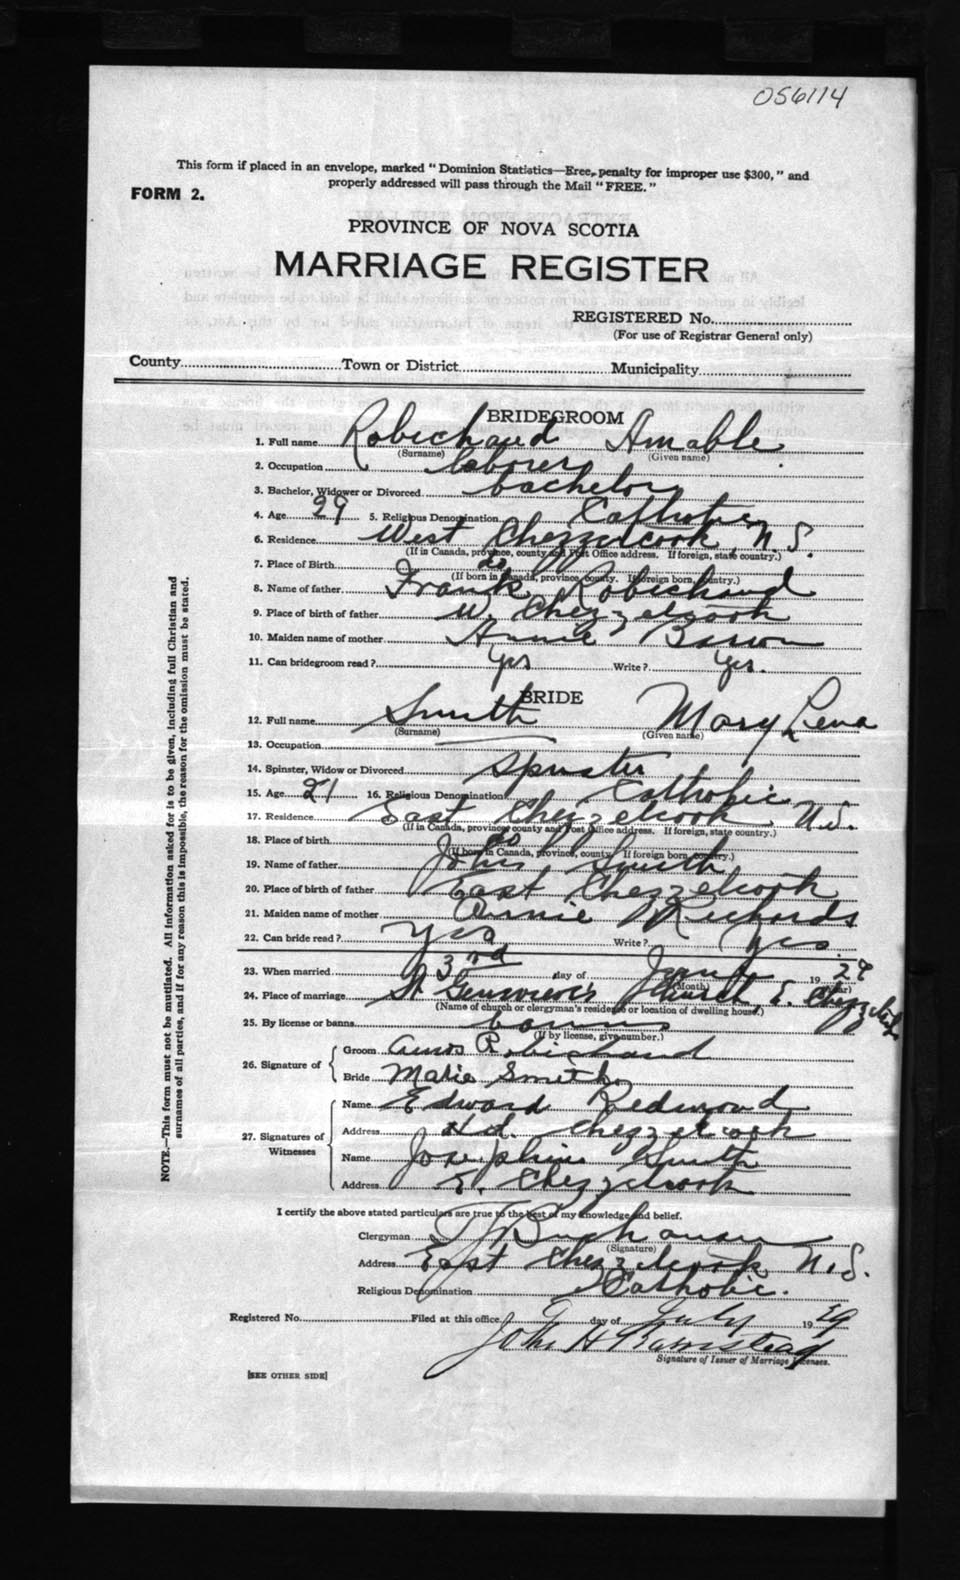 056114
This form if placed in an envelope, marked "Dominion Statistics—Free, penalty for improper use $300," and
properly addressed will pass through the Mail "FREE."
FORM 2.
PROVINCE OF NOVA SCOTIA
MARRIAGE REGISTER
REGISTERED No.
(For use of Registrar General only)
County Town or District Municipality
BRIDEGROOM
1. Full name Robichaud Amable
(Surname) (Given name)
2. Occupation laborer
3. Bachelor, Widower or Divorced bachelor
4. Age 29 5. Religious Denomination Catholic
6. Residence West Chezzetcook, N.S.
(If in Canada, province, county and Post Office address. If foreign, state country.)
7. Place of Birth do
(If born in Canada, province, county. If foreign born, country.)
8. Name of father Frank Robichaud
9. Place of birth of father W. Chezzetcook
10. Maiden name of mother Annie
11. Can bridegroom read? Yes Write? Yes.
BRIDE
12. Full name Smith Mary Lena
(Surname) (Given name)
13. Occupation
14. Spinster, Widow or Divorced Spinster
15. Age 21 16. Religious Denomination Catholic
17. Residence East Chezzetcook N.S.
(If in Canada, province, county and Post Office address. If foreign, state country.)
18. Place of birth do
(If born in Canada, province, county. If foreign born, country.)
19. Name of father John Smith
20. Place of birth of father East Chezzetcook
21. Maiden name of mother Annie Richards
22. Can bride read? Yes Write? Yes
23. When married 3rd day of 19 29
(Month) (Year)
24. Place of marriage St Genevieve's Church, E. Chezzetcook
(Name of church or clergyman's residence or location of dwelling house.)
25. By license or banns banns
(If by license, give number.)
26. Signature of
Groom Amos Robichaud
Bride Marie Smith
27. Signatures of Witnesses
Name Edward Redmond
Address Hd. Chezzetcook
Name Josephine Smith
Address E. Chezzetcook
I certify the above stated particulars are true to the best of my knowledge and belief.
Clergyman
(Signature)
Address East Chezzetcook N.S.
Religious Denomination Catholic.
Registered No. Filed at this office day of July 19 29
John H
Signature of Issuer of Marriage Licenses.
[SEE OTHER SIDE]
NOTE.—This form must not be mutilated. All information asked for is to be given, including full Christian and
surnames of all parties, and if for any reason this is impossible, the reason for the omission must be stated.